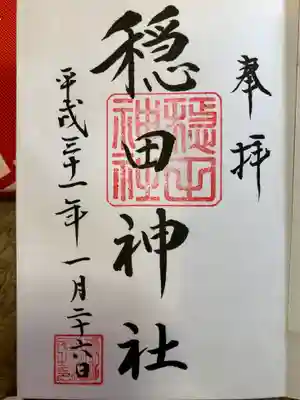 奉拝
穏田神社
平成三十一年一月二十六日
穏田神社